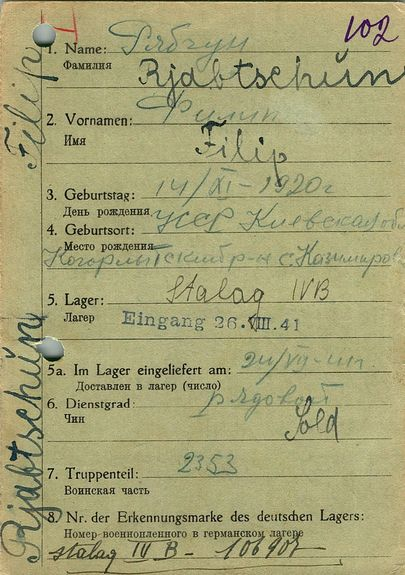 102
1. Name: Рябчун
Фамилия Rjabtschün
2. Vornamen: Филип
Имя Filip
3. Geburtstag: 14/XI-1920г
День рождения
4. Geburtsort: УССР Киевская обл
Место рождения
Когорлытский р-н с. Казимиров
5. Lager: Stalag IVB
Лагер Eingang 26. VIII. 41
5a. Im Lager eingeliefert am:
Доставлен в лагер (число)
6. Dienstgrad: рядовой
Чин Sold
7. Truppenteil: 2353
Воинская часть
8. Nr. der Erkennungsmarke des deutschen Lagers:
Номер военнопленного в германском лагере
Stalag IV B - 106907
Rjabtschün Filip